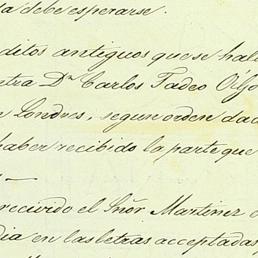 sa debe esperarse.
ditos antiguos que se hal
ntra Dn Carlos Tadeo O'Go
n Londres, segun orden dad
haber recibido la parte que
recivido el Sñor Martinez
dia en las letras acceptadas